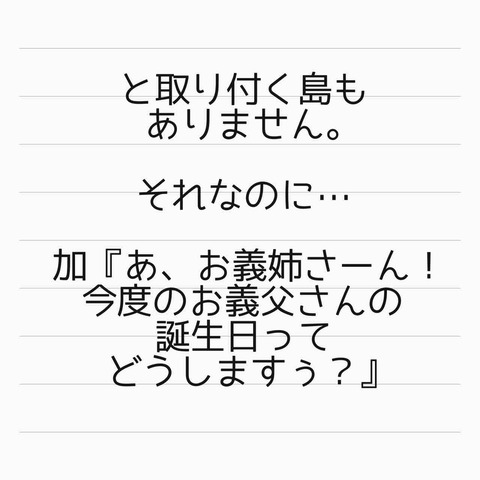 と取り付く島も
ありません。
それなのに…
加『あ、お義姉さーん！
今度のお義父さんの
誕生日って
どうしますぅ？』